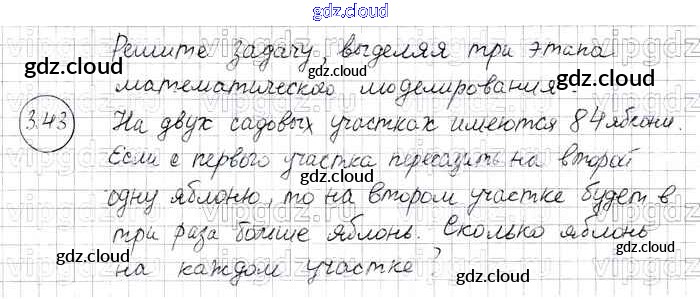 gdz.cloud
Решите задачу, выделяя три этапа
gdz.cloud gdz.cloud
математического моделирования.
3.43
На двух садовых участках имеются 84 яблони.
gdz.cloud gdz.cloud
Если с первого участка пересадить на второй
gdz.cloud
одну яблоню, то на втором участке будет в
три раза больше яблонь. Сколько яблонь
gdz.cloud gdz.cloud
на каждом участке?
gdz.cloud